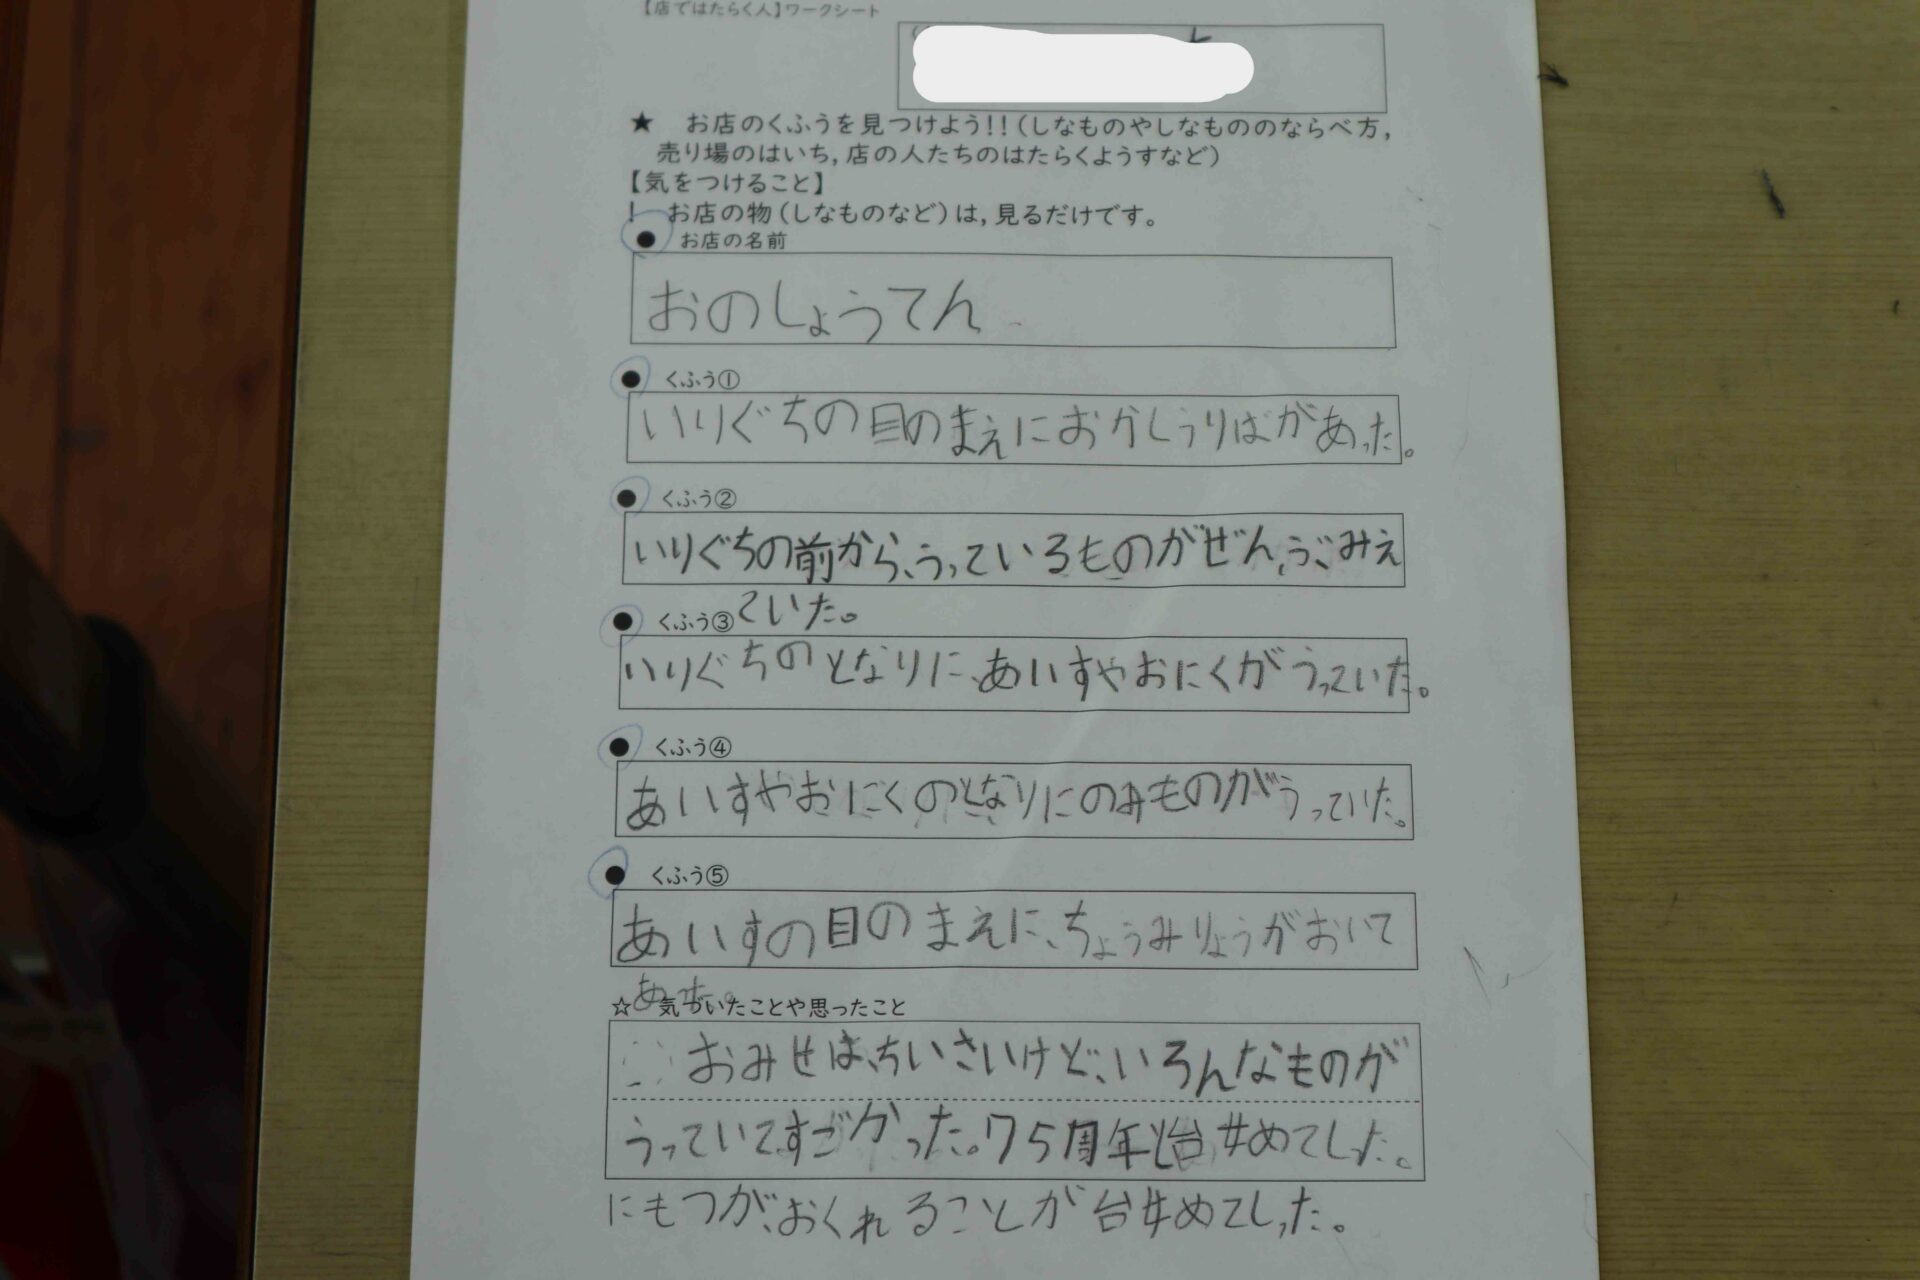 【店ではたらく人】ワークシート
★ お店のくふうを見つけよう!!(しなものやしなもののならべ方,
売り場のはいち,店の人たちのはたらくようすなど)
【気をつけること】
! お店の物(しなものなど)は,見るだけです。
● お店の名前
おのしょうてん
● くふう①
いりぐちの目のまえにおかしうりばがあった。
● くふう②
いりぐちの前から、うっているものがぜんぶみえ
ていた。
● くふう③
いりぐちのとなりに、あいすやおにくがうっていた。
● くふう④
あいすやおにくのとなりにのみものがうっていた。
● くふう⑤
あいすの目のまえに、ちょうみりょうがおいて
あった。
☆ 気づいたことや思ったこと
おみせは、ちいさいけど、いろんなものが
うっていてすごかった。75周年と始めてしった。
にもつが、おくれることが始めてしった。